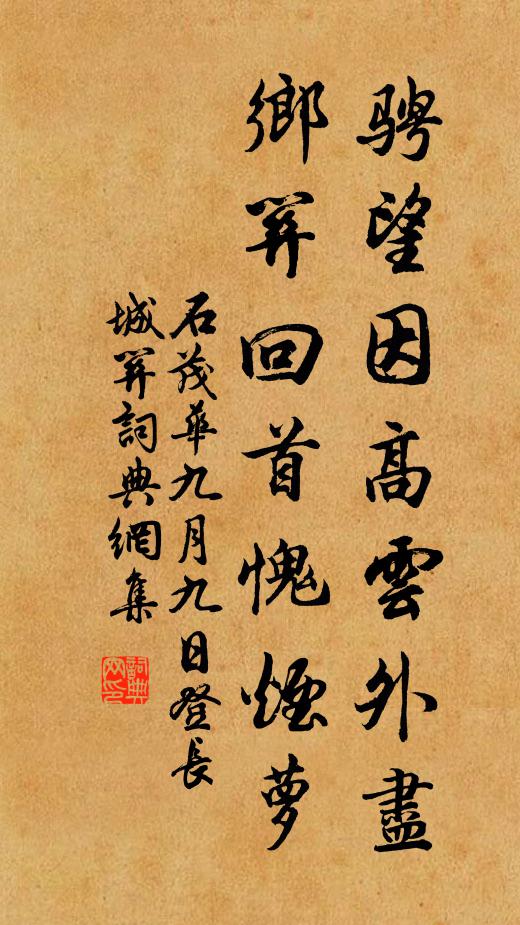 騁望因高雲外盡
鄉関回首愧煙蘿
石茂華九月九日登長
城関詞典網集
詞典网印